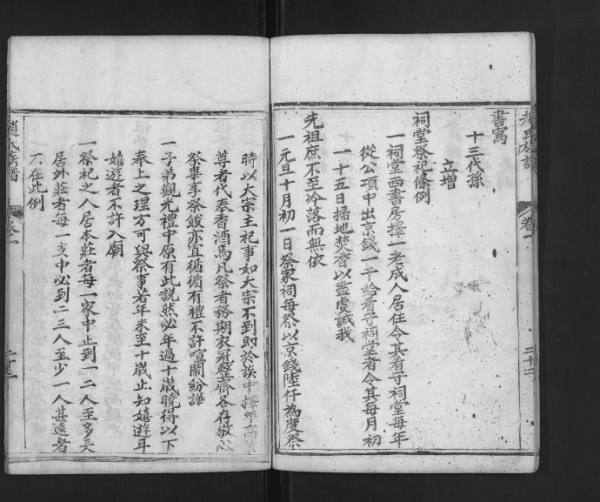 書寫
十三代孫
立增
祠堂祭祀條例
一祠堂西書房擇一老成人居住令其看守祠堂每年
從公項中出京錢一千給看守祠堂者令其每月初
一十五日掃地焚香以盡虔誠我
先祖庶不至冷落而無依
一元旦十月初一日祭家祠每祭以京錢陸仟為度祭
時以大宗主祀事如大宗不到即於族中擇年高
尊者代奉香酒焉凡祭者務期衣冠整齊各存敬心
祭畢享祭餕亦宜循循有禮不許喧鬧紛譁
一子弟觀光禮中原有此說然必年過十歲曉得以下
奉上之理方可與祭事若年未至十歲止知嬉遊耳
嬉遊者不許入廟
一祭祀之人居本莊者每一家中止到一二人至多
居外莊者每一支中必到二三人至少一人甚遠者
不在此例
趙氏族譜
卷一